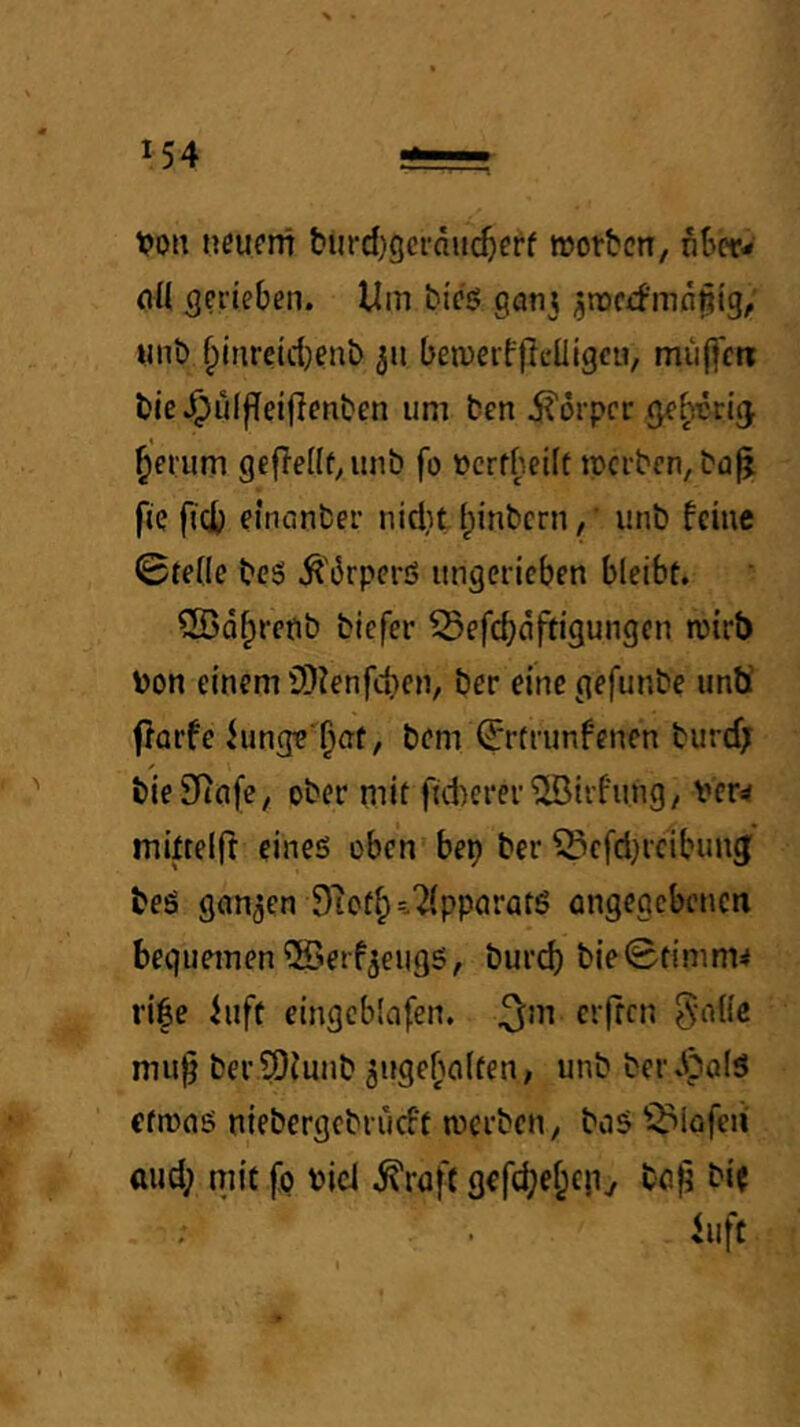 154
von neuem durchgeräuchert worden, über-
all gerieben. Um dies ganz zweckmäßig,
und hinreichend zu bewerkstelligen, müssen
die Hülfleistenden um den Körper gehörig
herum gestellt, und so vertheilt werden, daß
sie sich einander nicht hindern, und keine
Stelle des Körpers ungerieben bleibt.
Während dieser Beschäftigungen wird
von einem Menschen, der eine gesunde und
starke Lunge hat, dem Ertrunkenen durch
die Nase, oder mit sicherer Wirkung, ver-
mittelst eines oben bey der Beschreibung
des ganzen Noth-Apparats angegebenen
bequemen Werkzeugs, durch die Stimm-
ritze Luft eingeblasen. Im ersten Falle
muß der Mund zugehalten, und der Hals
etwas niedergedrückt werden, das Blasen
auch mit so viel Kraft geschehen, daß die
Luft